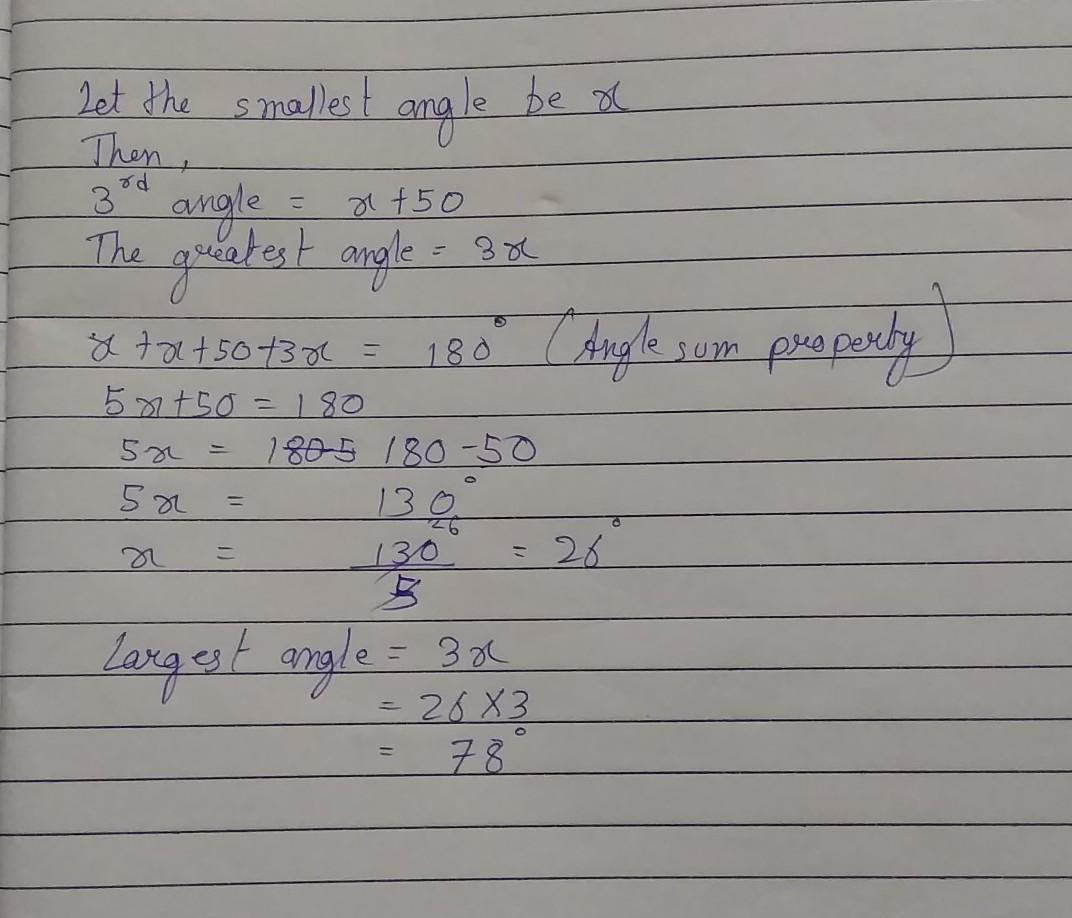 Let the smallest angle be x
Then,
3rd angle = x+50
The greatest angle = 3x
x+x+50+3x = 180° (Angle sum property)
5x+50 = 180
5x = 180-50
5x = 130°
26
x = 130 = 26°
5
Largest angle = 3x
= 26×3
= 78°